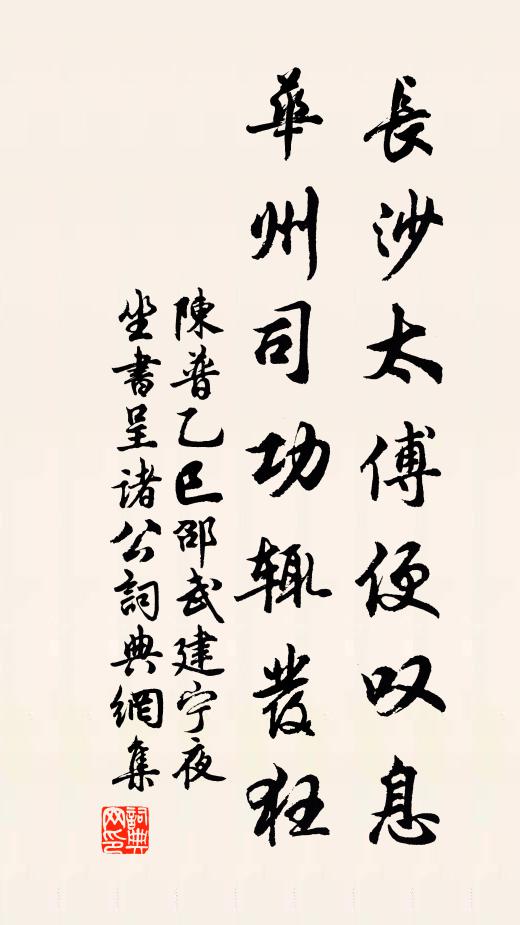 長沙太傅便叹息
華州司功辄發狂
陳普乙巳邵武建宁夜
坐書呈诸公詞典網集
詞典网印